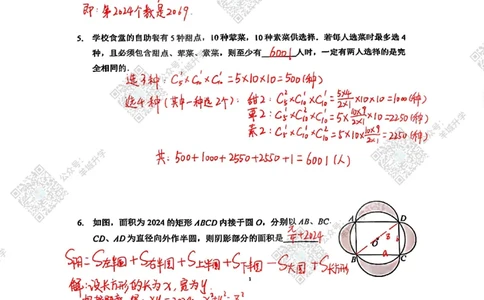 即:第2024个数是2069.
5. 学校食堂的自助餐有5种甜点,10种荤菜,10种素菜供选择.若每人选菜时最多选4
种,且必须包含甜点、荤菜、素菜,则至少有 6001 人时,一定有两人选择的是完
全相同的.
选3种:C₅¹×C₁₀¹×C₁₀¹=5×10×10=500(种)
选4种(其中一种选2个):甜2:C₅²×C₁₀¹×C₁₀¹=5×4/2×1×10×10=1000(种)
荤2:C₅¹×C₁₀²×C₁₀¹=5×10×9/2×1×10=2250(种)
素2:C₅¹×C₁₀¹×C₁₀²=5×10×10×9/2×1=2250(种)
共:500+1000+2550+2550+1=6001(人)
6. 如图,面积为2024的矩形ABCD内接于圆O,分别以AB、BC
CD、AD为直径向外作半圆,则阴影部分的面积是
A D
O
B a C
S阴=S左半圆+S右半圆+S上半圆+S下半圆-S大圆+S长方形
解:设长方形的长为x,宽为y.